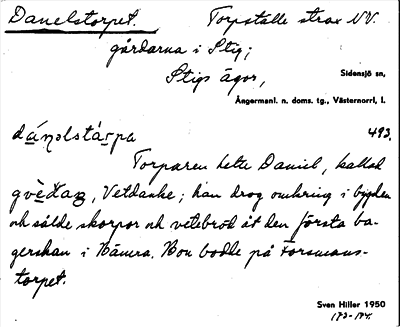 Danelstorpet. Torpställe strax NV.
gårdarna i Stig;
Stigs ägor,
Sidensjö sn,
Ångermanl. n. doms. tg., Västernorrl, l.
dáṇəlstàrpa 493.
Torparen hette Daniel, kallad
, Vetdanke; han drog omkring i bygden
och sålde skorpor och vetebröd åt den första ba-
gerskan i Nämra. Hon bodde på Forsmans-
torpet.
Sven Hiller 1950
193-194.